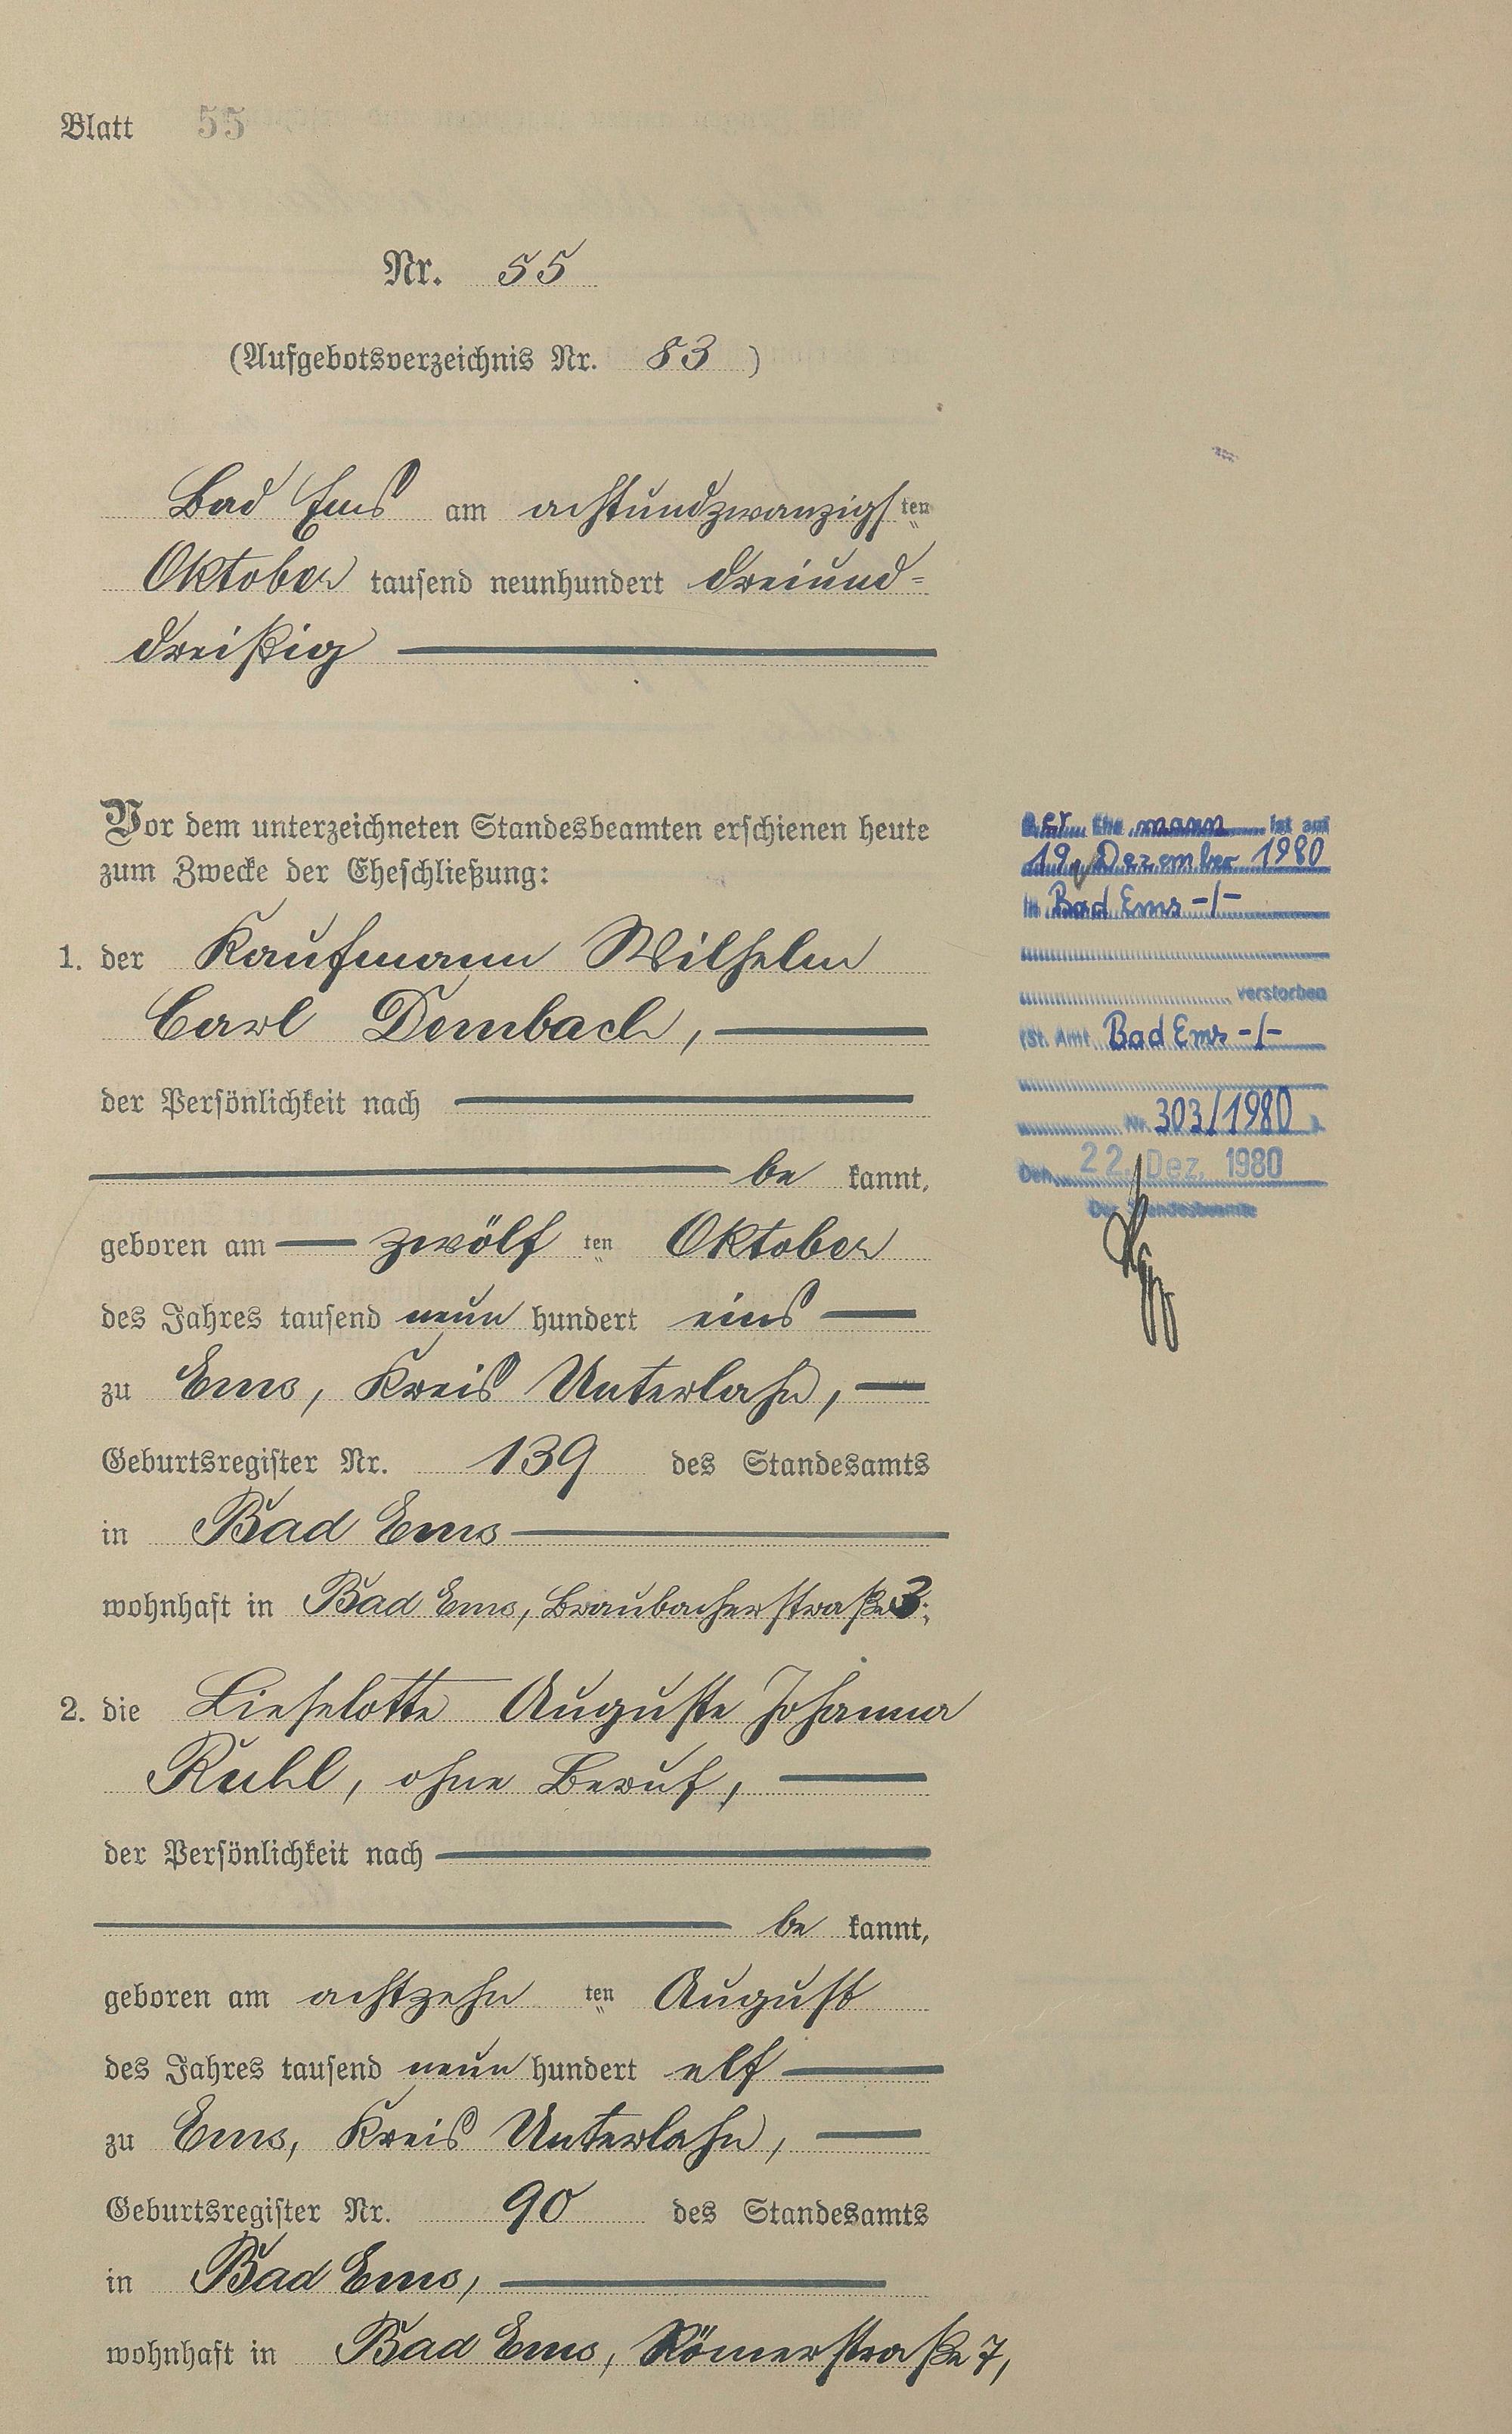 Blatt 55
Nr. 55
(Aufgebotsverzeichnis Nr. 83)
Bad Ems am achtundzwanzigsten
Oktober tausend neunhundert dreiund-
dreißig
Vor dem unterzeichneten Standesbeamten erschienen heute
zum Zwecke der Eheschließung:
1. der Kaufmann Wilhelm
Carl Dombach,
der Persönlichkeit nach
be kannt,
geboren am zwölf ten Oktober
des Jahres tausend neun hundert eins
zu Ems, Kreis Unterlahn,
Geburtsregister Nr. 139 des Standesamts
in Bad Ems
wohnhaft in Bad Ems, Braubacherstraße 3;
2. die Lieselotte Auguste Johanna
Ruhl, ohne Beruf,
der Persönlichkeit nach
be kannt,
geboren am achtzehn ten August
des Jahres tausend neun hundert elf
zu Ems, Kreis Unterlahn,
Geburtsregister Nr. 90 des Standesamts
in Bad Ems,
wohnhaft in Bad Ems, Römerstraße 7,
Der Ehe mann ist am
19. Dezember 1980
in Bad Ems -/-
verstorben
(St. Amt Bad Ems -/-
Nr. 303/1980 )
Den 22. Dez. 1980
Der Standesbeamte